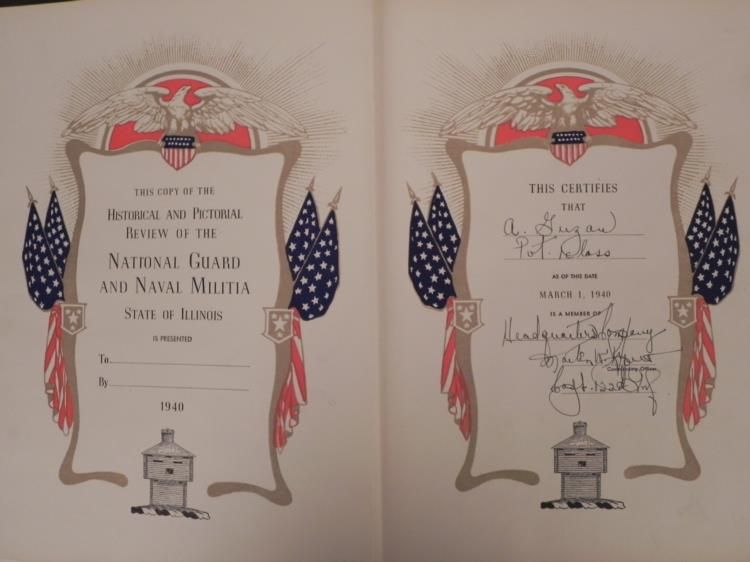 THIS COPY OF THE
HISTORICAL AND PICTORIAL
REVIEW OF THE
NATIONAL GUARD
AND NAVAL MILITIA
STATE OF ILLINOIS
IS PRESENTED
To
By
1940
THIS CERTIFIES
THAT
A.
Pvt. Class
AS OF THIS DATE
MARCH 1, 1940
IS A MEMBER OF
Headquarters Company
Commanding Officer
Capt. 122